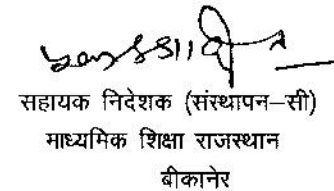 सहायक निदेशक (संस्थापन–सी)
माध्यमिक शिक्षा राजस्थान
बीकानेर